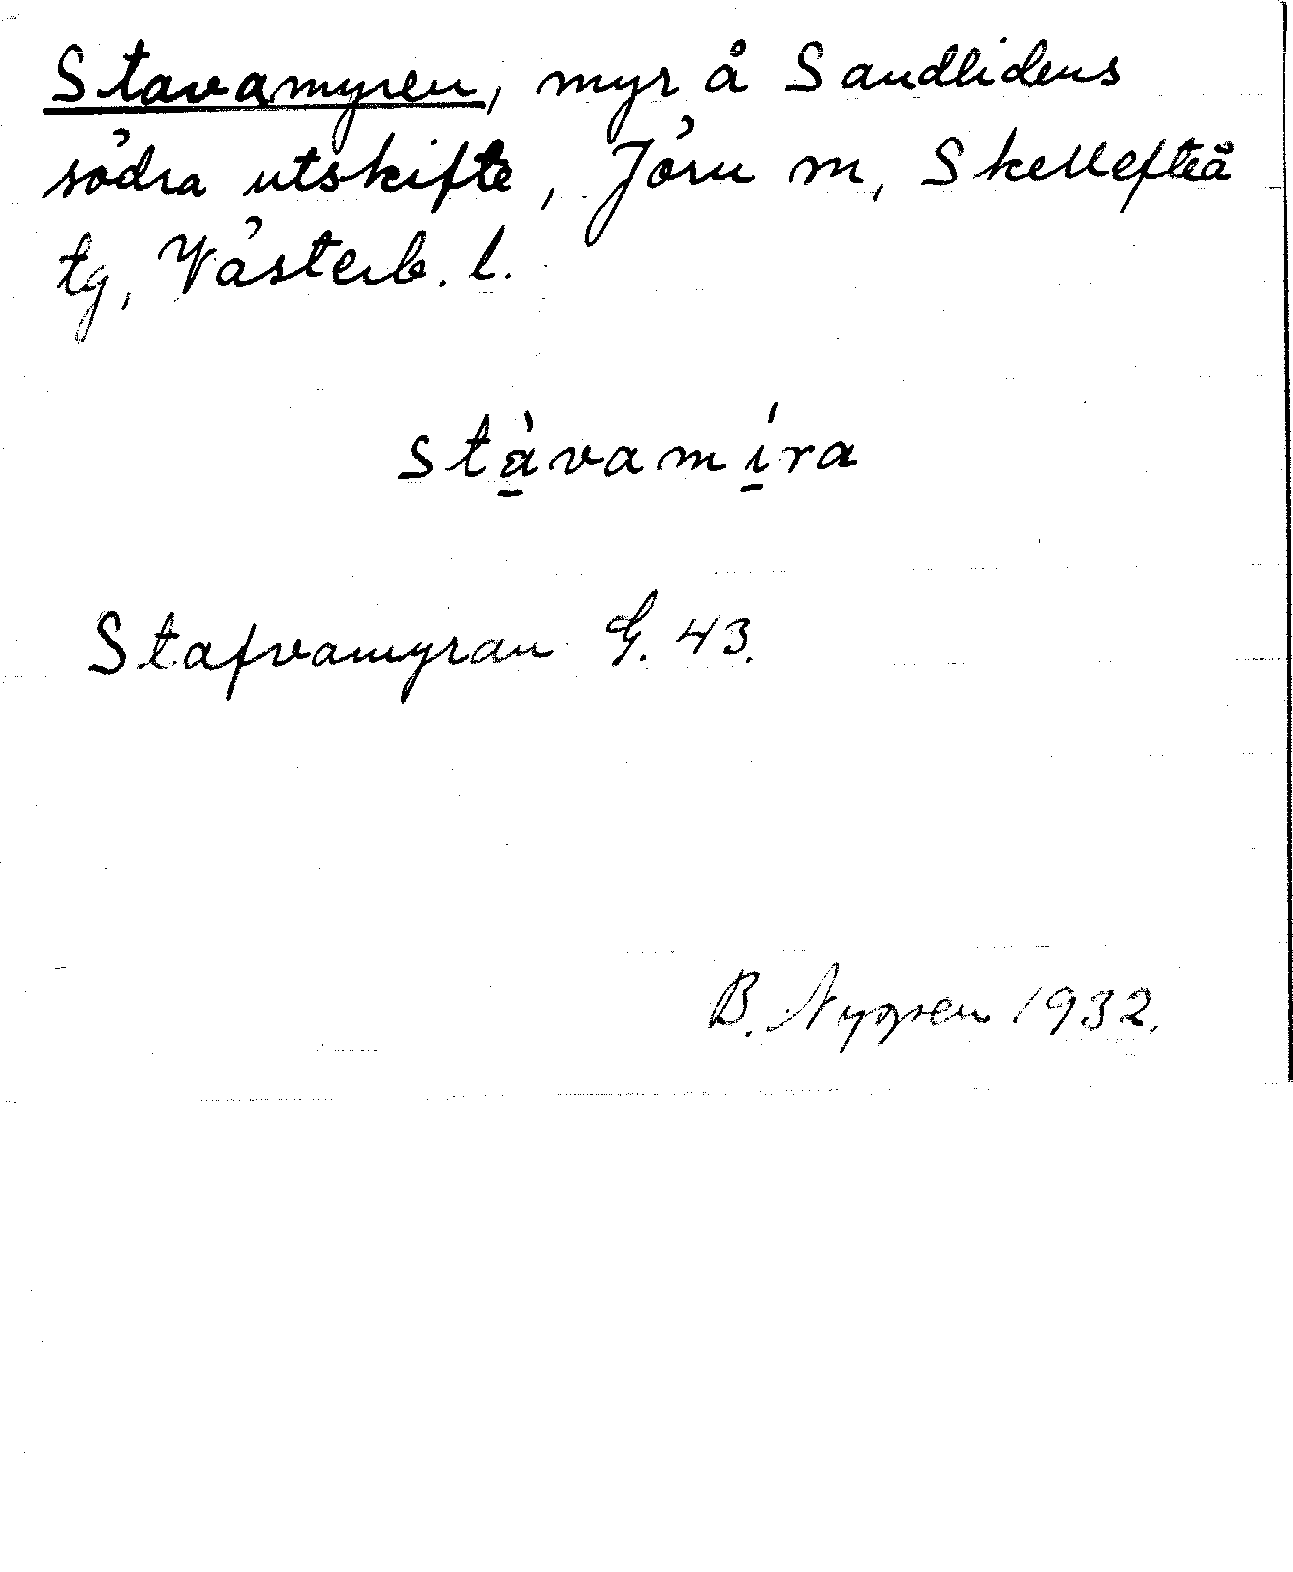 Stavamyren, myr å Sandlidens
södra utskifte, Jörn m, Skellefteå
tg, Västerb. l.
stàvamíra
Stafvamyran G. 43.
B. Nygren 1932.